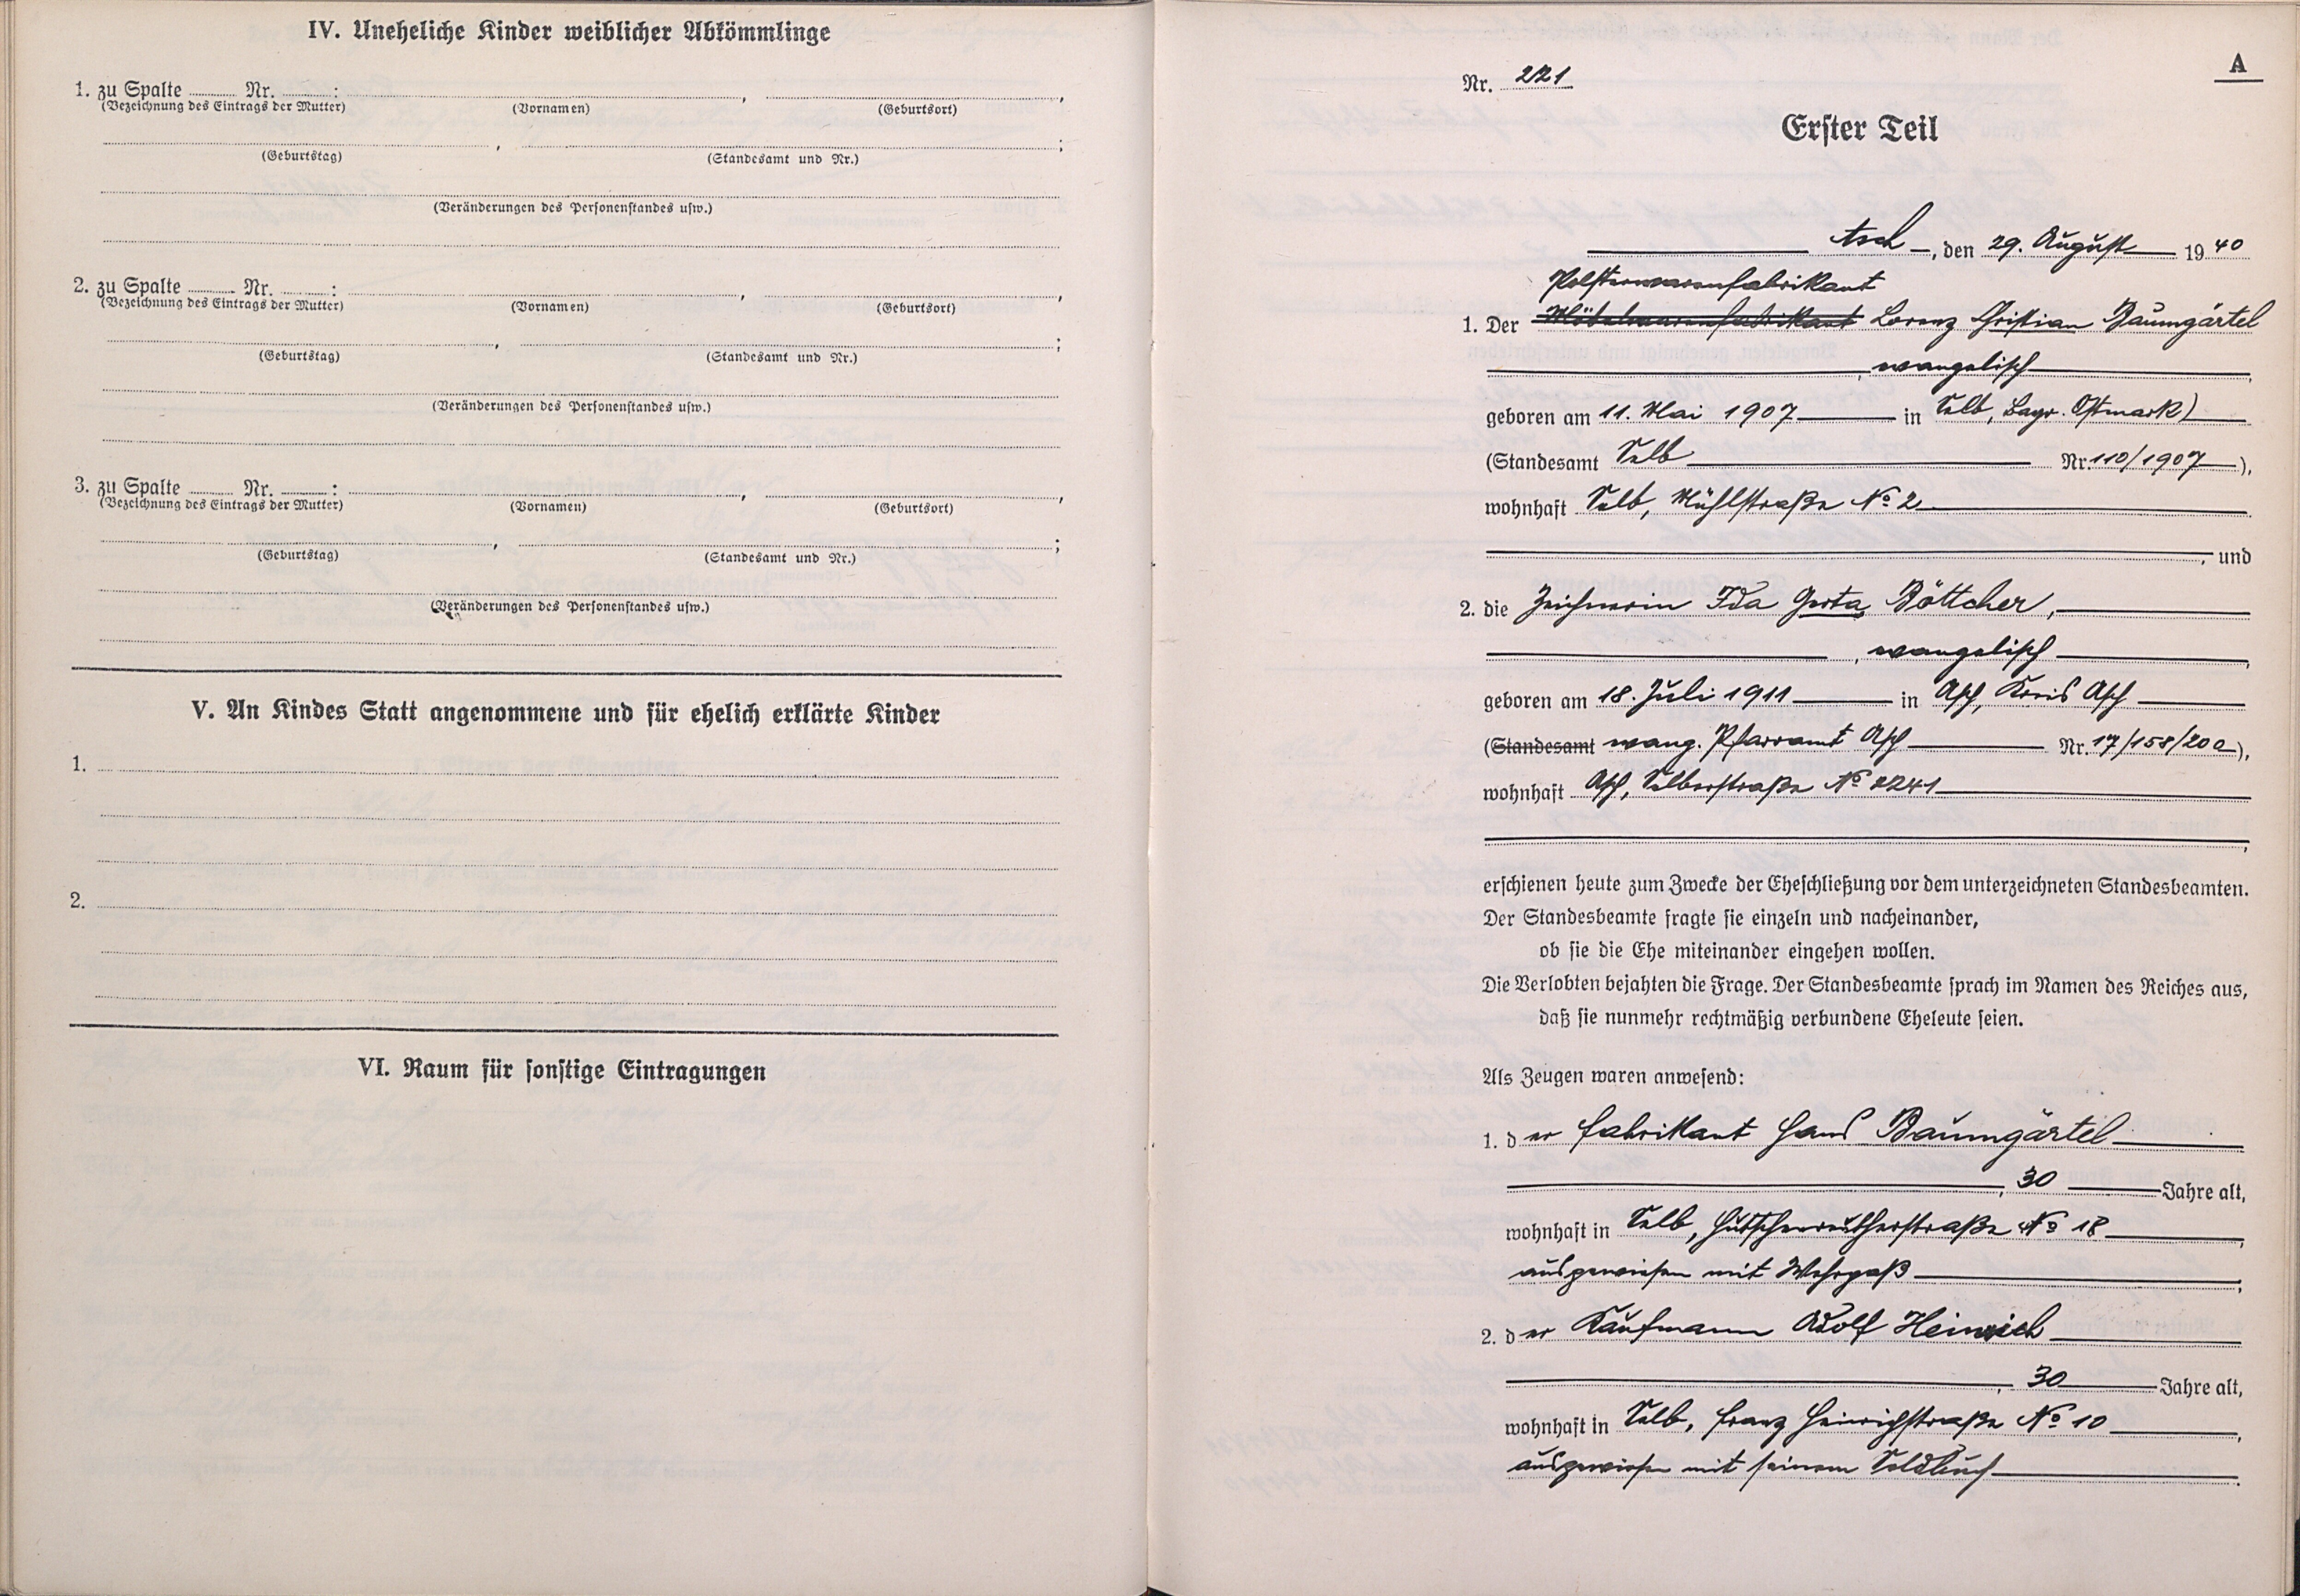 IV. Uneheliche Kinder weiblicher Abkömmlinge
1. zu Spalte ........ Nr. ........ : , ,
(Bezeichnung des Eintrags der Mutter) (Vornamen) (Geburtsort)
, ;
(Geburtstag) (Standesamt und Nr.)
(Veränderungen des Personenstandes usw.)
2. zu Spalte ........ Nr. ........ : , ,
(Bezeichnung des Eintrags der Mutter) (Vornamen) (Geburtsort)
, ;
(Geburtstag) (Standesamt und Nr.)
(Veränderungen des Personenstandes usw.)
3. zu Spalte ........ Nr. ........ : , ,
(Bezeichnung des Eintrags der Mutter) (Vornamen) (Geburtsort)
, ;
(Geburtstag) (Standesamt und Nr.)
(Veränderungen des Personenstandes usw.)
V. An Kindes Statt angenommene und für ehelich erklärte Kinder
1.
2.
VI. Raum für sonstige Eintragungen
A
Nr. 221
Erster Teil
Asch, den 29. August 1940
Polsterwarenfabrikant
1. Der Möbelwarenfabrikant Lorenz Christian Baumgärtel
, evangelisch,
geboren am 11. Mai 1907 in Selb, Bayr. Ostmark)
(Standesamt Selb Nr. 110/1907),
wohnhaft Selb, Mühlstraße No 2
, und
2. die Zeichnerin Ida Gerta Böttcher,
, evangelisch,
geboren am 18. Juli 1911 in Asch, Kreis Asch
(Standesamt evang. Pfarramt Asch Nr. 17/158/200),
wohnhaft Asch, Selberstraße No 2241
,
erschienen heute zum Zwecke der Eheschließung vor dem unterzeichneten Standesbeamten.
Der Standesbeamte fragte sie einzeln und nacheinander,
ob sie die Ehe miteinander eingehen wollen.
Die Verlobten bejahten die Frage. Der Standesbeamte sprach im Namen des Reiches aus,
daß sie nunmehr rechtmäßig verbundene Eheleute seien.
Als Zeugen waren anwesend:
1. der Fabrikant Hans Baumgärtel
, 30 Jahre alt,
wohnhaft in Selb, Hutschenreutherstraße No 18,
ausgewiesen mit Wehrpaß,
2. der Kaufmann Adolf Heinrich
, 30 Jahre alt,
wohnhaft in Selb, Franz Heinrichstraße No 10,
ausgewiesen mit seinem Soldbuch.